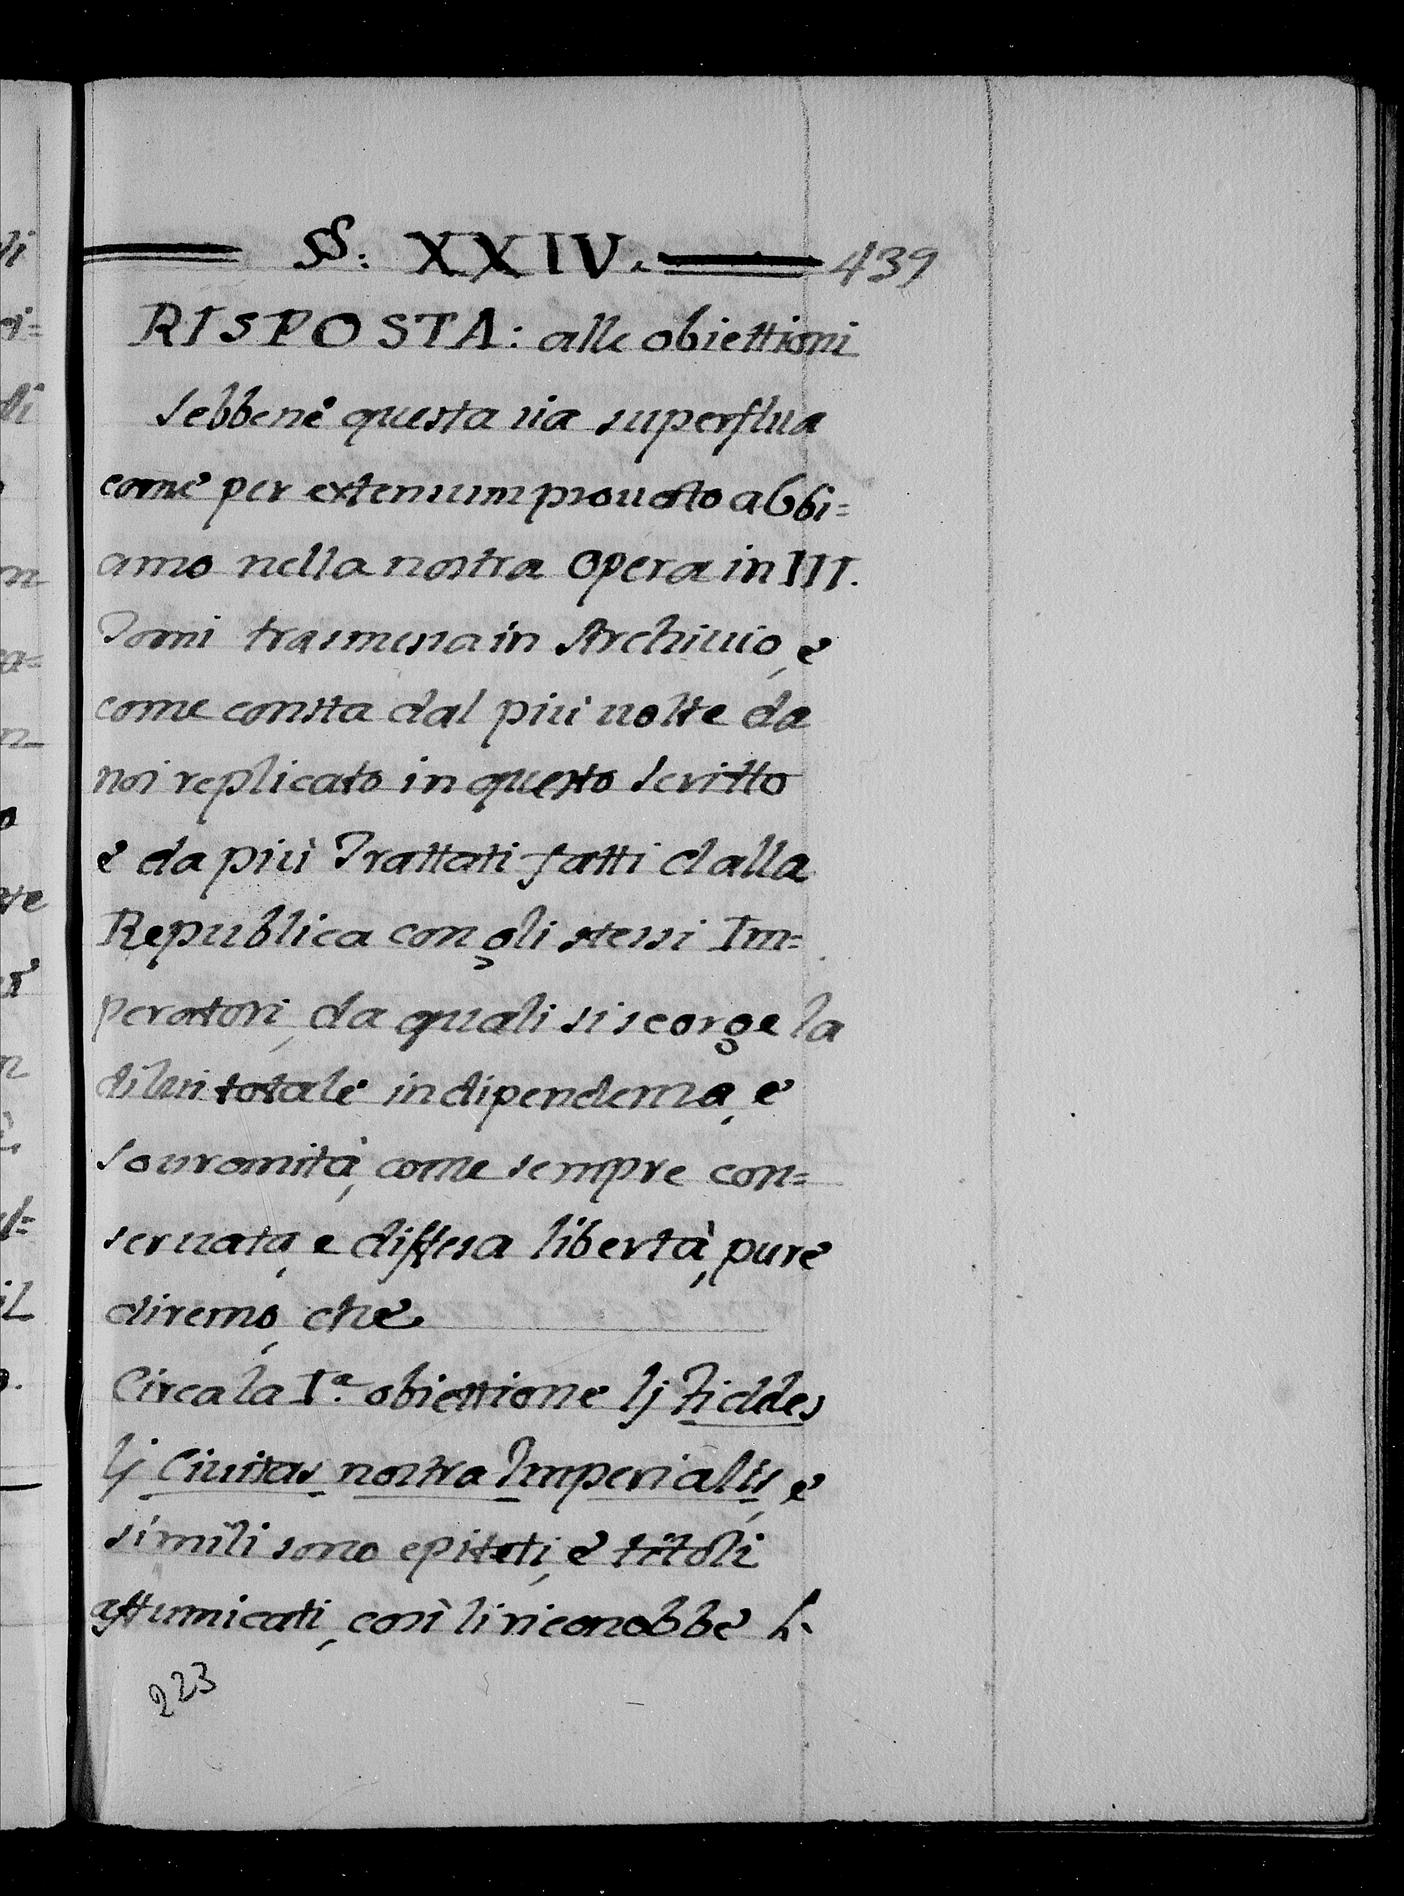 §§: XXIV. 439
RISPOSTA: alle obiettioni
Sebbene questa sia superflua
come per extensum prouato abbi=
amo nella nostra Opera in III.
Tomi trasmessa in Archiuio, e
come consta dal più uolte da
noi replicato in questo Scritto
e da più Trattati fatti dalla
Republica con gli stessi Im=
peratori, da quali si scorge la
di lui totale indipendenza, e
Souranità, come sempre con=
seruata, e diffesa libertà, pure
diremo, che
Circa la I.ª obiettione lj Fideles
lj Ciuitas nostra Imperialis, e
simili sono epiteti, e titoli
affumicati, così li riconobbe
223